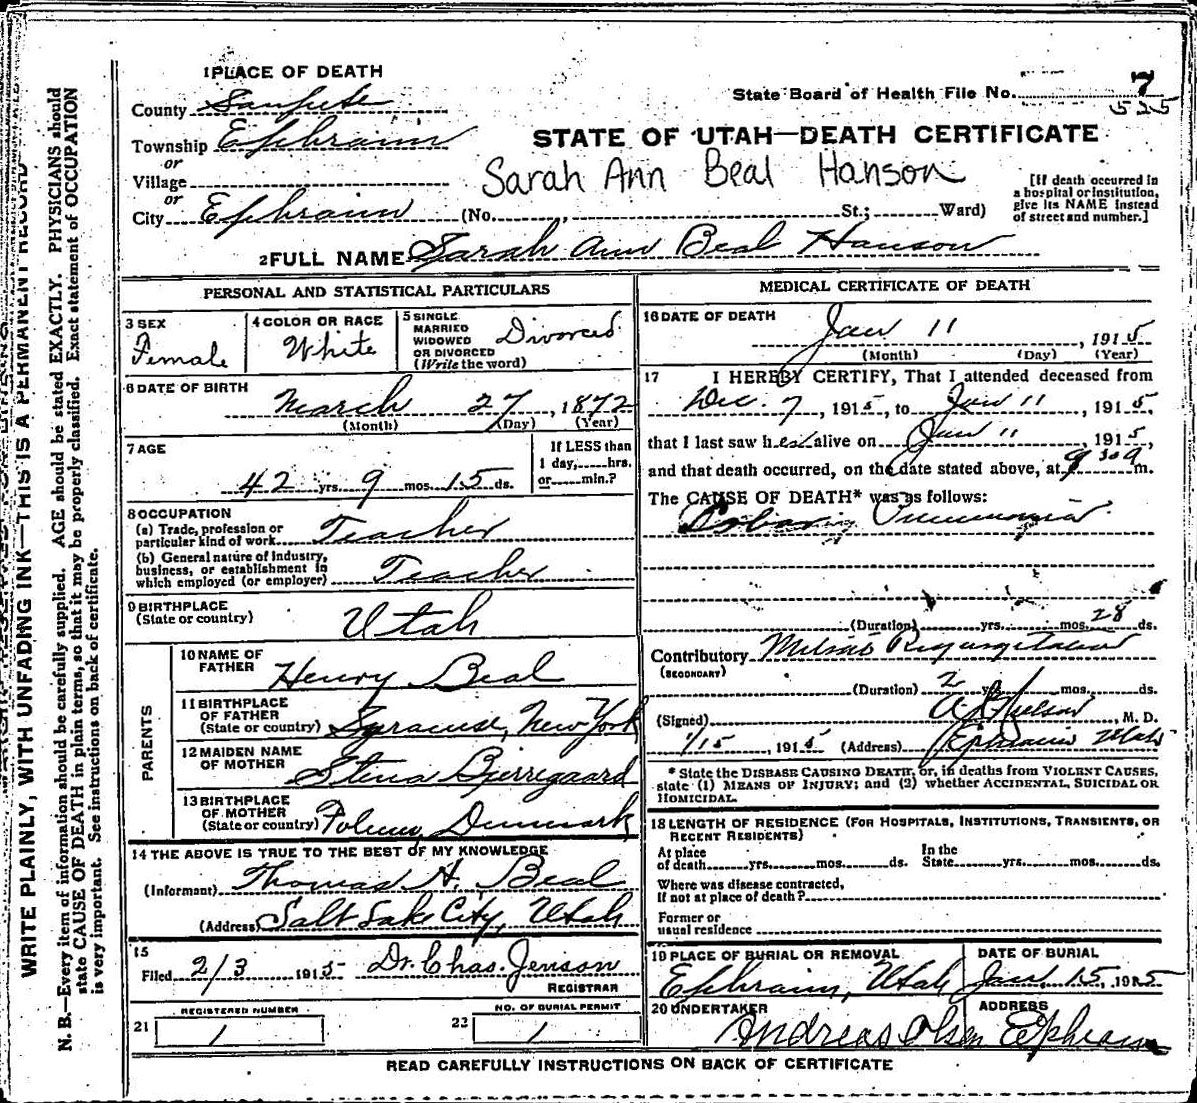 1 PLACE OF DEATH
County Sanpete
Township Ephraim
or
Village
or
City Ephraim (No. , St.; Ward)
State Board of Health File No. 7
525
STATE OF UTAH—DEATH CERTIFICATE
Sarah Ann Beal Hanson
[If death occurred in
a hospital or institution,
give its NAME instead
of street and number.]
2 FULL NAME Sarah Ann Beal Hanson
PERSONAL AND STATISTICAL PARTICULARS
3 SEX
Female
4 COLOR OR RACE
White
5 SINGLE
MARRIED
WIDOWED
OR DIVORCED
(Write the word)
Divorced
6 DATE OF BIRTH
March 27, 1872
(Month) (Day) (Year)
7 AGE
42 yrs. 9 mos. 15 ds.
If LESS than
1 day, hrs.
or min.?
8 OCCUPATION
(a) Trade, profession or
particular kind of work Teacher
(b) General nature of industry,
business, or establishment in
which employed (or employer) Teacher
9 BIRTHPLACE
(State or country) Utah
PARENTS
10 NAME OF
FATHER Henry Beal
11 BIRTHPLACE
OF FATHER
(State or country) Syracuse, New York
12 MAIDEN NAME
OF MOTHER Stena Bjerregaard
13 BIRTHPLACE
OF MOTHER
(State or country) Denmark
14 THE ABOVE IS TRUE TO THE BEST OF MY KNOWLEDGE
(Informant) Thomas H. Beal
(Address) Salt Lake City, Utah
15
Filed 2/3 1915 Dr. Chas. Jenson
REGISTRAR
21 REGISTERED NUMBER
1
22 NO. OF BURIAL PERMIT
1
MEDICAL CERTIFICATE OF DEATH
16 DATE OF DEATH
Jan 11, 1915
(Month) (Day) (Year)
17 I HEREBY CERTIFY, That I attended deceased from
Dec. 7, 1915, to Jan 11, 1915,
that I last saw her alive on Jan 11, 1915,
and that death occurred, on the date stated above, at 9 30 a m.
The CAUSE OF DEATH* was as follows:
Pneumonia
(Duration) yrs. mos. 28 ds.
Contributory Regurgitation
(SECONDARY)
(Duration) 2 yrs. mos. ds.
(Signed) Nielson, M. D.
1/15, 1915 (Address) Ephraim Utah
* State the DISEASE CAUSING DEATH, or, in deaths from VIOLENT CAUSES,
state (1) MEANS OF INJURY; and (2) whether ACCIDENTAL, SUICIDAL OR
HOMICIDAL.
18 LENGTH OF RESIDENCE (FOR HOSPITALS, INSTITUTIONS, TRANSIENTS, OR
RECENT RESIDENTS)
At place
of death yrs. mos. ds.
In the
State yrs. mos. ds.
Where was disease contracted,
If not at place of death?
Former or
usual residence
19 PLACE OF BURIAL OR REMOVAL
Ephraim, Utah
DATE OF BURIAL
Jan. 15, 1915
20 UNDERTAKER
Andreas Olsen
ADDRESS
Ephraim
READ CAREFULLY INSTRUCTIONS ON BACK OF CERTIFICATE
WRITE PLAINLY, WITH UNFADING INK—THIS IS A PERMANENT RECORD
N. B.—Every item of information should be carefully supplied. AGE should be stated EXACTLY. PHYSICIANS should
state CAUSE OF DEATH in plain terms, so that it may be properly classified. Exact statement of OCCUPATION
is very important. See instructions on back of certificate.